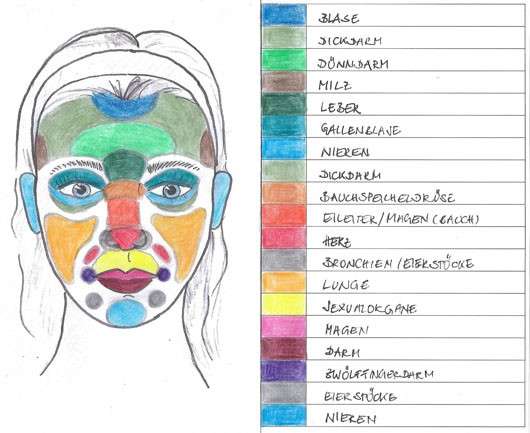 BLASE
DICKDARM
DÜNNDARM
MILZ
LEBER
GALLENBLASE
NIEREN
DICKDARM
BAUCHSPEICHELDRÜSE
EILEITER/MAGEN (BAUCH)
HERZ
BRONCHIEN/EIERSTÖCKE
LUNGE
SEXUALORGANE
MAGEN
DARM
ZWÖLFFINGERDARM
EIERSTÖCKE
NIEREN